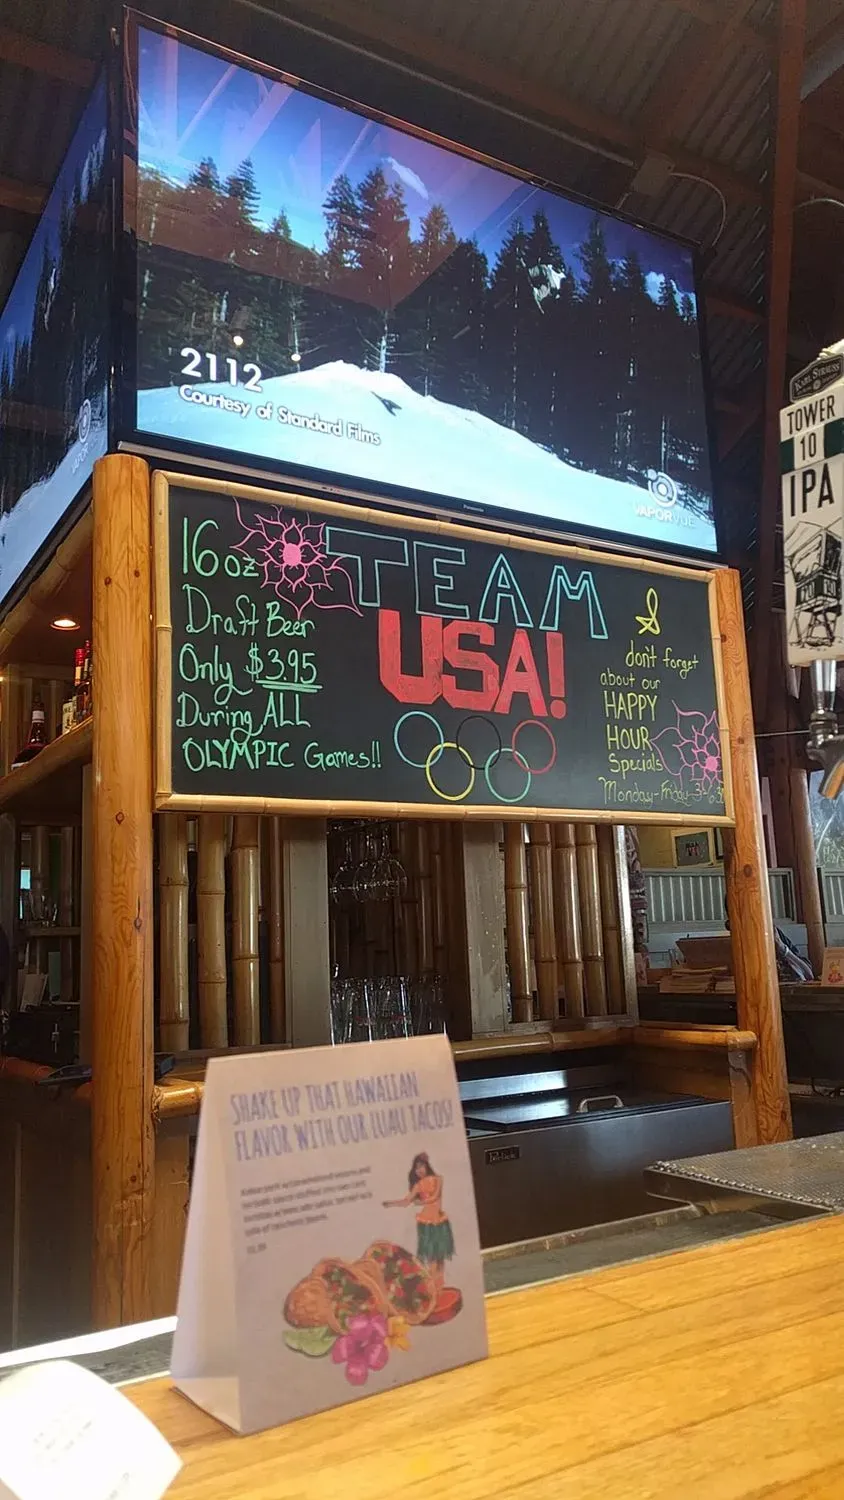 2112
Courtesy of Standard Films
VAPORVUE
Panasonic
KARL STRAUSS
TOWER
10
IPA
16oz
Draft Beer
Only $3.95
During ALL
OLYMPIC Games!!
TEAM
USA!
&
don't forget
about our
HAPPY
HOUR
Specials
Monday-Friday 3-6:30
SHAKE UP THAT HAWAIIAN
FLAVOR WITH OUR LUAU TACOS!
Perlick